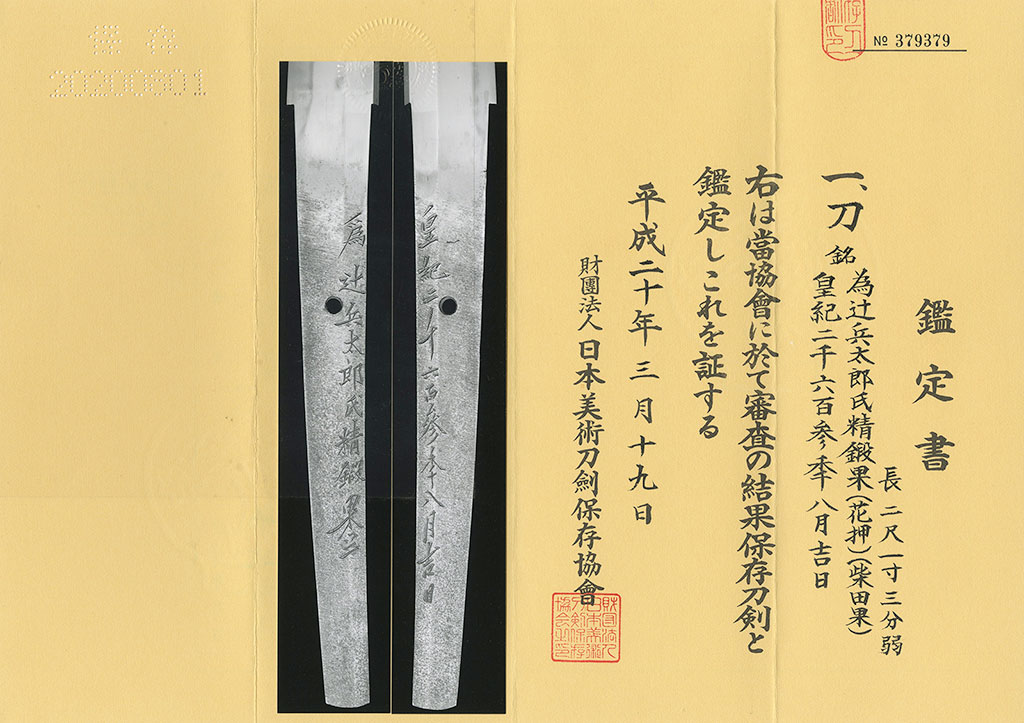 保存
20200601
№ 379379
鑑定書
一、刀 銘 為辻兵太郎氏精鍛果(花押)(柴田果)
皇紀二千六百参年八月吉日
長二尺一寸三分弱
右は當協會に於て審査の結果保存刀剣と
鑑定しこれを証する
平成二十年三月十九日
財團法人日本美術刀劍保存協會
皇紀二千六百参年八月吉日
為辻兵太郎氏精鍛果